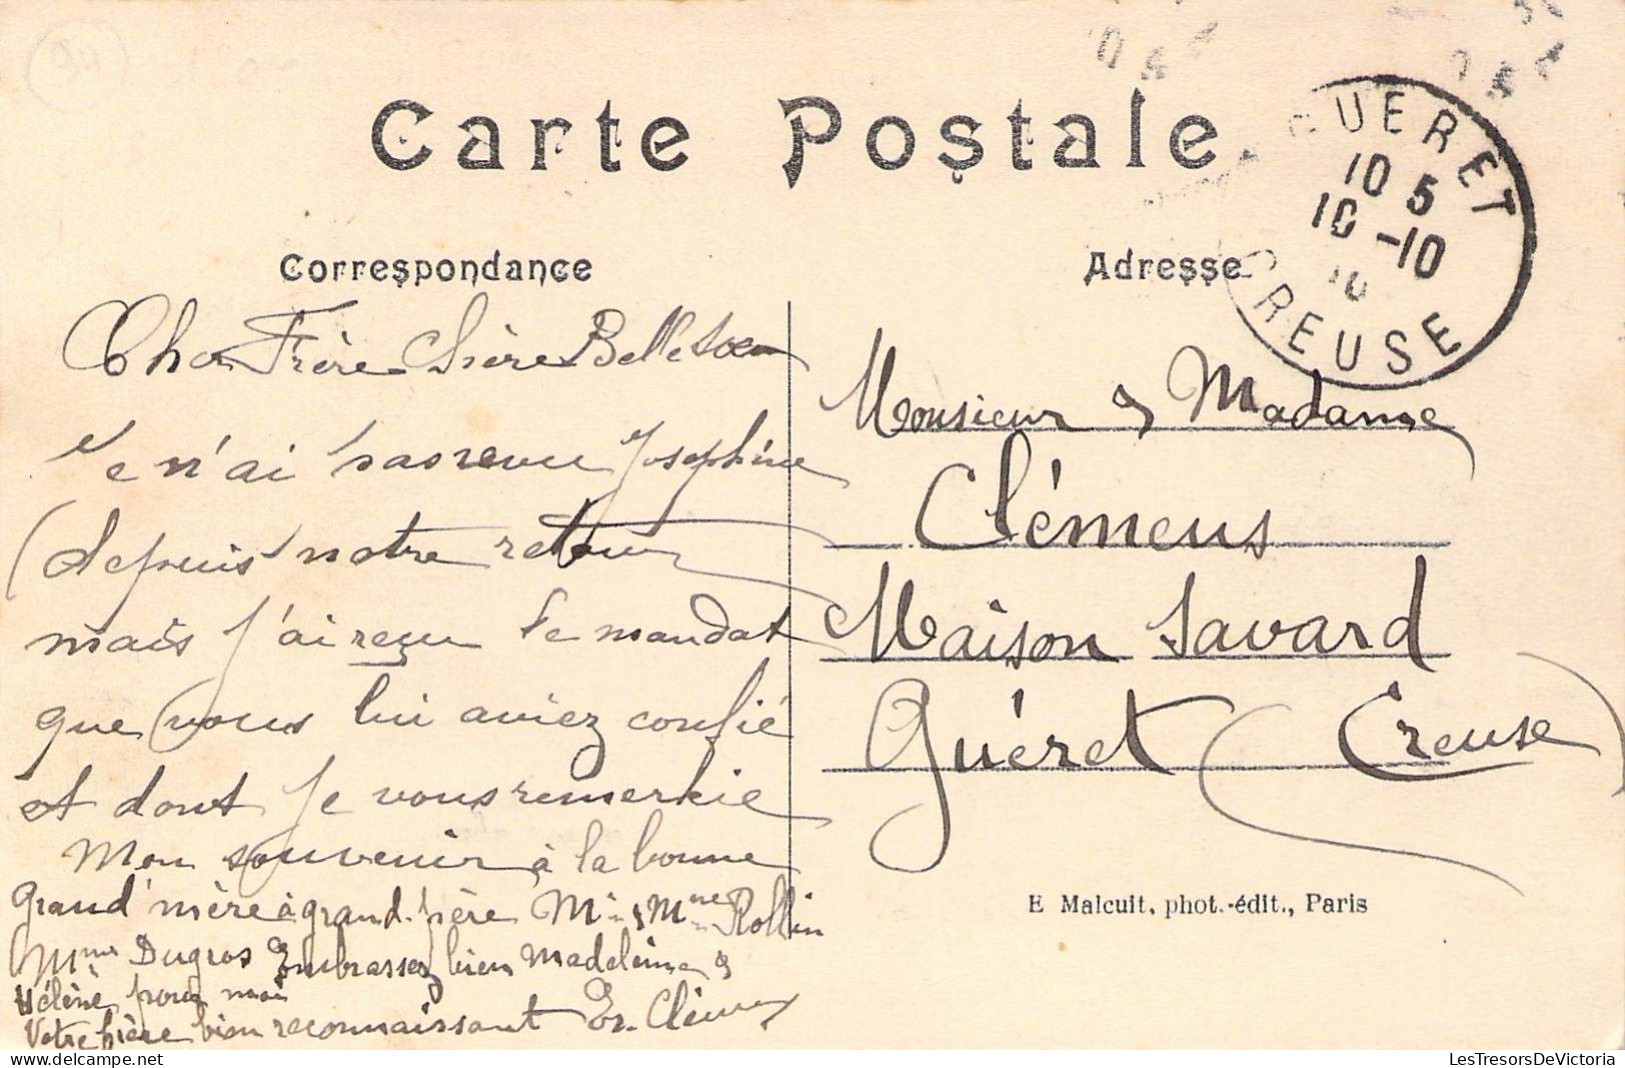 Carte Postale
GUERET
10 5
10 -10
10
CREUSE
Correspondance
Cher Frère Chère Belle Sœur
Je n'ai pas revu Joséphine
depuis notre retour
mais j'ai reçu le mandat
que vous lui aviez confié
et dont je vous remerkie
Mon souvenir à la bonne
Grand'mère à grand-père Mr & Mme Rollin
Mme Dugros Embrassez bien Madeleine &
Hélène pour moi
Votre frère bien reconnaissant Er. Clémens
Adresse
Monsieur & Madame
Clémens
Maison Savard
Guéret (Creuse)
E Malcuit, phot.-édit., Paris
LesTresorsDeVictoria